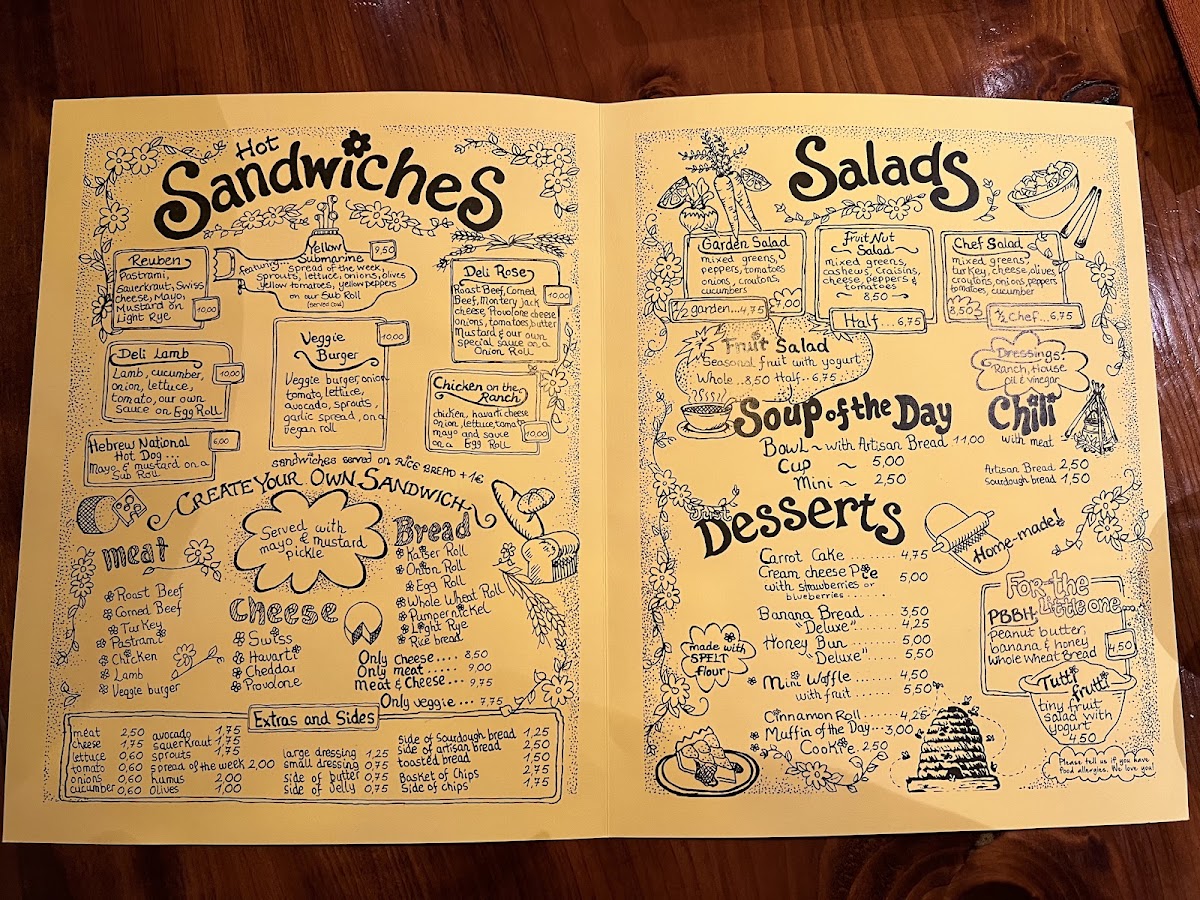 Hot
Sandwiches
Reuben
Pastrami,
Sauerkraut, Swiss
cheese, Mayo,
Mustard on
Light Rye
10,00
Yellow
Submarine
9,50
Featuring...
spread of the week,
sprouts, lettuce, onions, olives
yellow tomatoes, yellow peppers
on our Sub Roll
(served cold)
Deli Rose
Roast Beef, Corned
Beef, Montery jack
cheese, Provolone cheese
onions, tomatoes, butter
Mustard & our own
special sauce on a
Onion Roll
10,00
Deli Lamb
Lamb, cucumber,
onion, lettuce,
tomato, our own
Sauce on Egg Roll
10,00
Veggie
Burger
10,00
Veggie burger, onion
tomato, lettuce,
avocado, sprouts,
garlic spread, on a
vegan roll
Chicken on the
Ranch
chicken, havarti cheese
onion, lettuce, toma
mayo and sauce
on a Egg Roll
10,00
Hebrew National
Hot Dog...
Mayo & mustard on a
Sub Roll
6,00
sandwiches served on RICE BREAD +1€
CREATE YOUR OWN SANDWICH
Served with
mayo & mustard
pickle
meat
Roast Beef
Corned Beef
Turkey
Pastrami
Chicken
Lamb
Veggie burger
Cheese
Swiss
Havarti
Cheddar
Provolone
Bread
Kaiser Roll
Onion Roll
Egg Roll
Whole Wheat Roll
Pumpernickel
Light Rye
Rice bread
Only cheese.... 8,50
Only meat...... 9,00
Meat & Cheese... 9,75
Only veggie... 7,75
Extras and Sides
meat 2,50
cheese 1,75
lettuce 0,60
tomato 0,60
onions 0,60
cucumber 0,60
avocado 1,75
sauerkraut 1,75
sprouts 1,75
spread of the week 2,00
humus 2,00
Olives 1,00
large dressing 1,25
small dressing 0,75
side of butter 0,75
side of Jelly 0,75
side of sourdough bread 1,25
side of artisan bread 2,50
toasted bread 1,50
Basket of Chips 2,75
Side of chips 1,75
Salads
Garden Salad
mixed greens,
peppers, tomatoes
onions, croutons,
cucumbers
1/2 garden...4,75
7,00
Fruit Nut
Salad
mixed greens,
cashews, craisins,
cheese, peppers &
tomatoes
~ 8,50 ~
Half...6,75
Chef Salad
mixed greens,
turkey, cheese, olives
croutons, onions, peppers
tomatoes, cucumber
8,50
1/2 Chef...6,75
Fruit Salad
Seasonal fruit with yogurt
Whole...8,50 Half..6,75
Dressings:
Ranch, House
oil & vinegar
Soup of the Day
Chili
with meat
Bowl ~ with Artisan Bread 11,00
Cup ~ 5,00
Mini ~ 2,50
Artisan Bread 2,50
Sourdough bread 1,50
Just
Desserts
Home-made!
Carrot Cake ........ 4,75
Cream cheese Pie
with strawberries or
blueberries ........
5,00
Banana Bread ...... 3,50
"Deluxe" ..... 4,25
Honey Bun ........ 5,00
"Deluxe" ...... 5,50
Mini Waffle ....... 4,50
with fruit ..... 5,50
Cinnamon Roll ..... 4,25
Muffin of the Day...3,00
Cookie. 2,50
made with
SPELT
flour
For the
Little one...
PBBH
peanut butter,
banana & honey
Whole Wheat Bread
4,50
Tutti
frutti
tiny fruit
salad with
yogurt
4,50
Please tell us if you have
food allergies. We love you!